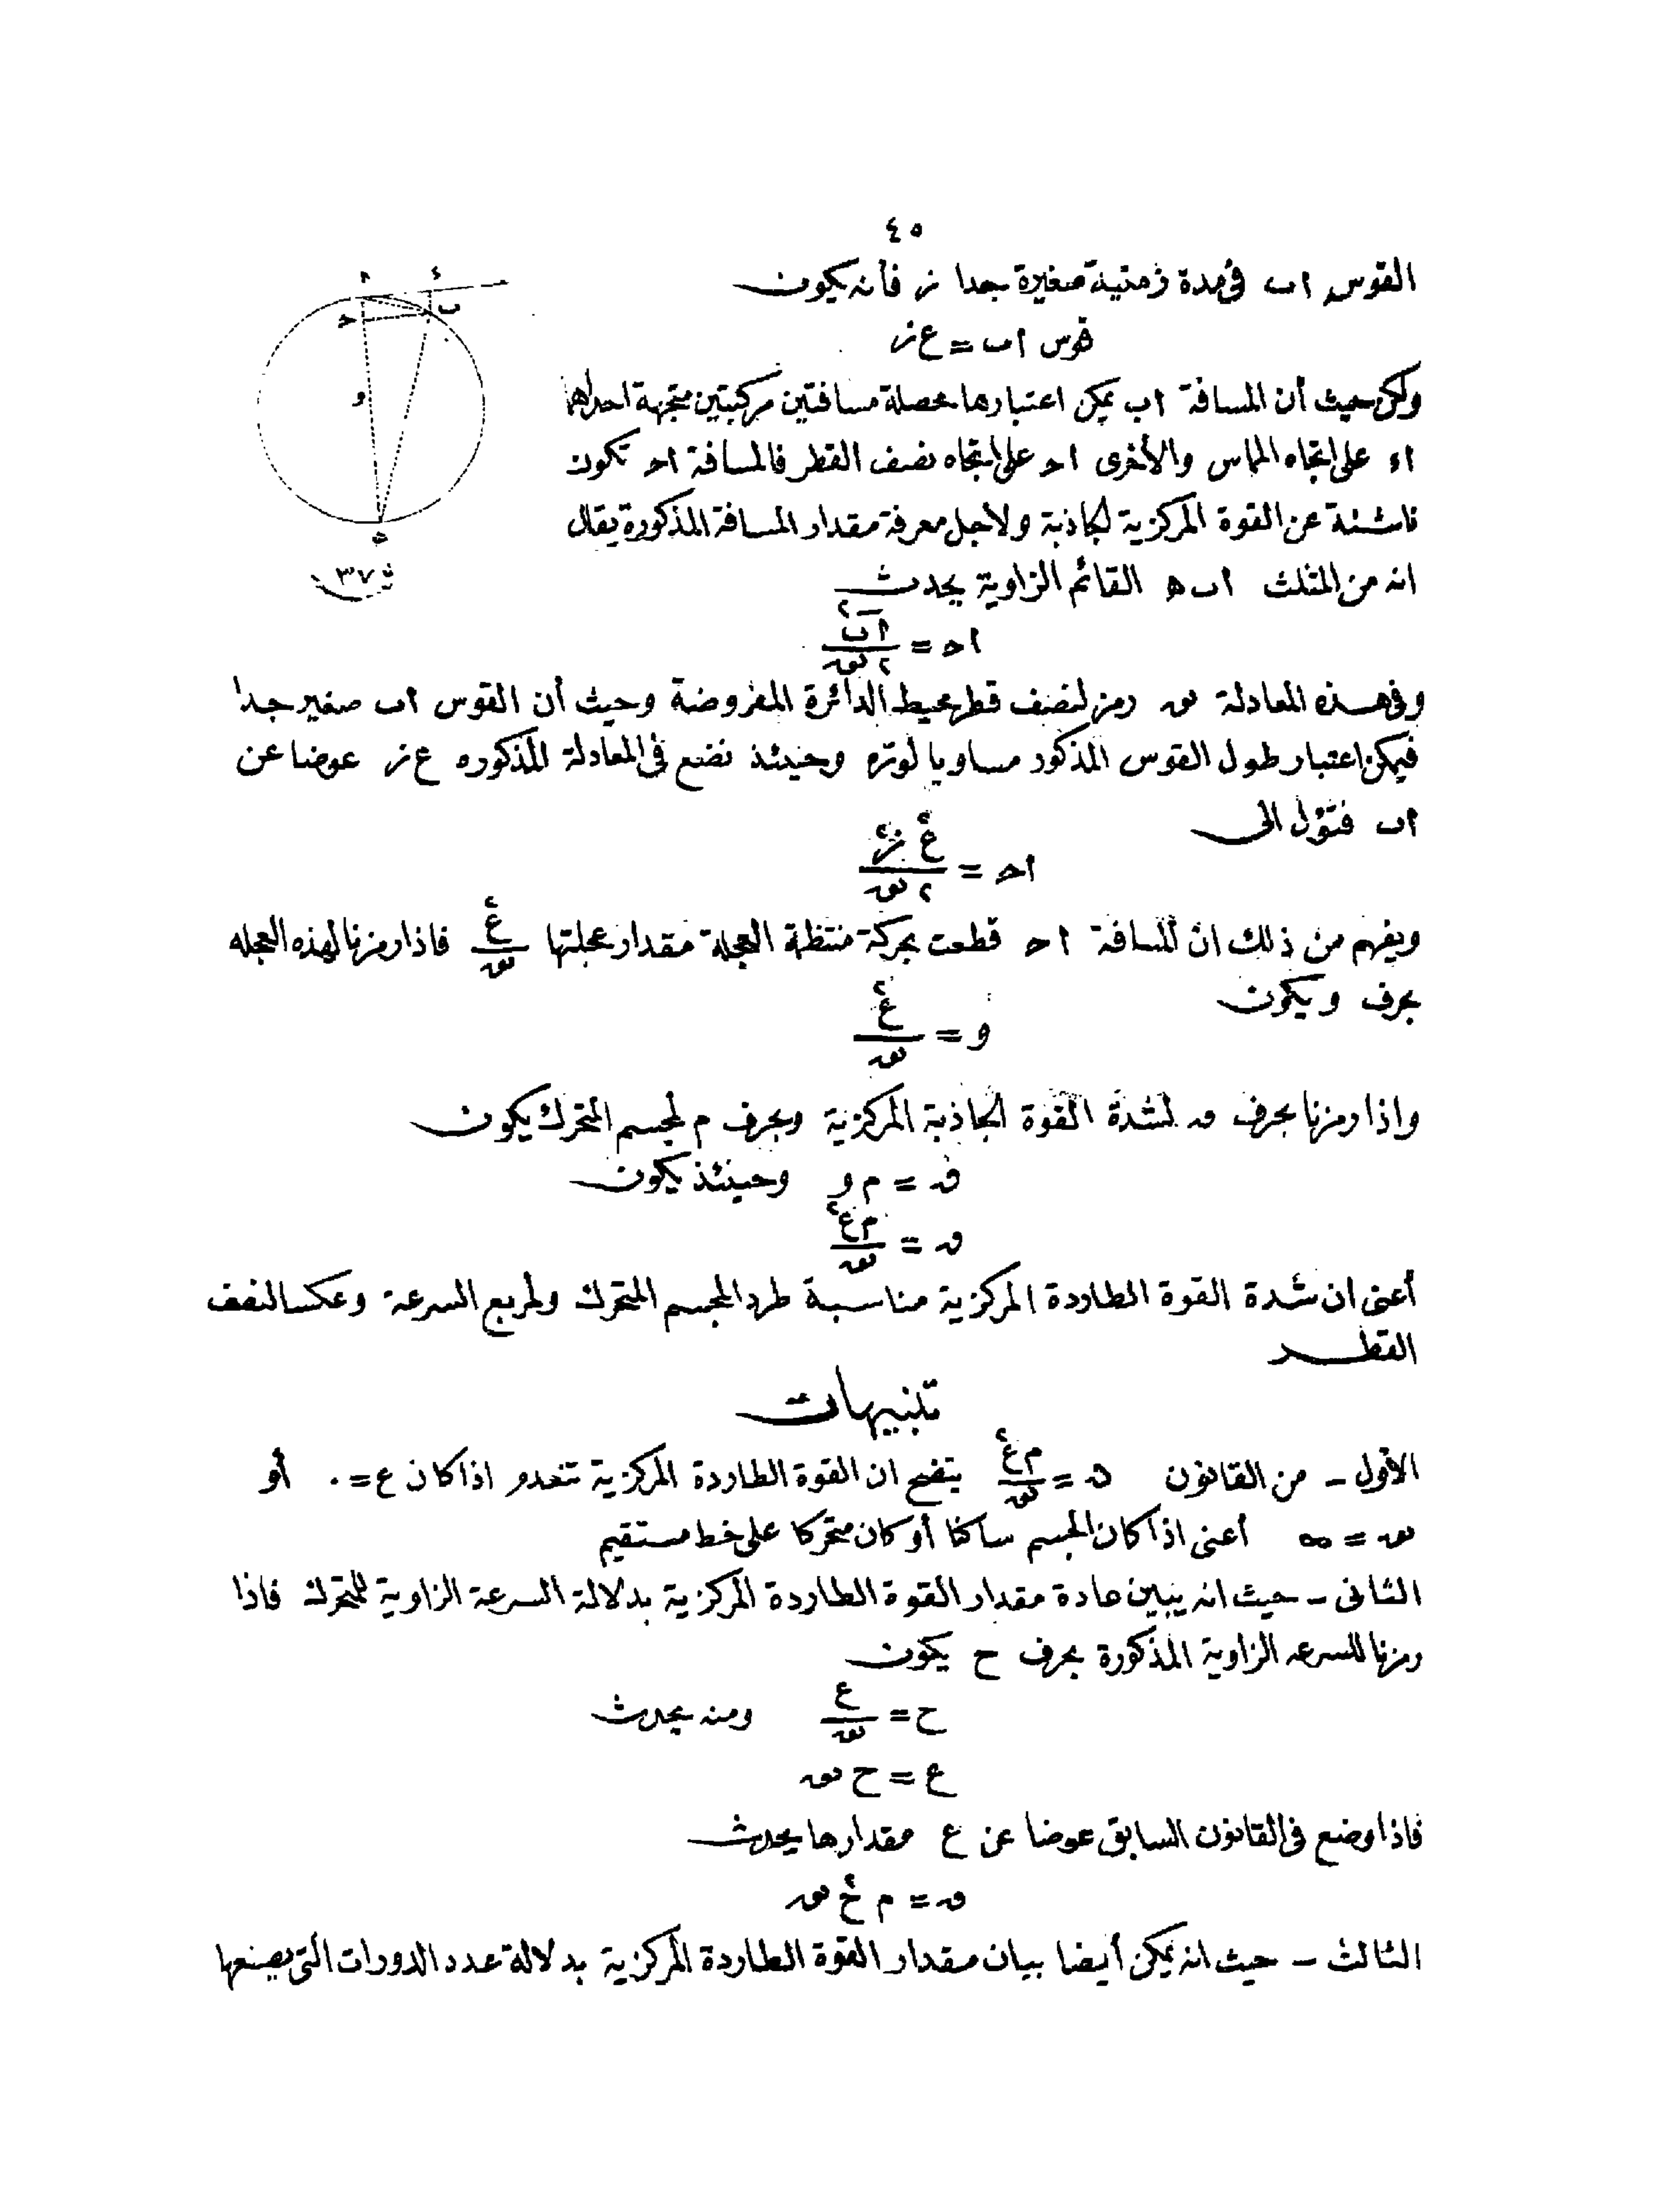 ٤٥
القوس اب فى مدة زمنية صغيرة جدا ز فأنه يكون
قوس اب = ع ز
ولكن حيث أن المسافة اب يمكن اعتبارها محصلة مسافتين مركبتين متجهة احداها
اء على اتجاه المماس والأخرى اح على اتجاه نصف القطر فالمسافة اح تكون
ناشئة عن القوة المركزية الجاذبة ولاجل معرفة مقدار المسافة المذكورة يقال
انه من المثلث اب ه القائم الزاوية يحدث
اح = اب٢ / ٢ نق
وفى هذه المعادلة نق رمز لنصف قطر محيط الدائرة المفروضة وحيث أن القوس اب صغير جدا
فيمكن اعتبار طول القوس المذكور مساويا لوتره وحينئذ نضع فى المعادلة المذكوره ع ز عوضا عن
اب فتؤل الى
اح = ع٢ ز٢ / ٢ نق
ويفهم من ذلك ان المسافة اح قطعت بحركة منتظمة العجلة مقدار عجلتها ع٢ / نق فاذا رمزنا لهذه العجله
بحرف و يكون
و = ع٢ / نق
واذا رمزنا بحرف ق لشدة القوة الجاذبة المركزية وبحرف م لجسم المتحرك يكون
ق = م و وحينئذ يكون
ق = م ع٢ / نق
أعنى ان شدة القوة الطاردة المركزية مناسبة طردا لمجسم المتحرك ولمربع السرعة وعكسا لنصف
القطر
تنبيهات
الأول – من القانون ق = م ع٢ / نق يتضح ان القوة الطاردة المركزية تنعدم اذا كان ع = ٠ أو
نق = ∞ أعنى اذا كان الجسم ساكنا أو كان متحركا على خط مستقيم
الثانى – حيث انه يبين عادة مقدار القوة الطاردة المركزية بدلالة السرعة الزاوية للمتحرك فاذا
رمزنا للسرعه الزاوية المذكورة بحرف ح يكون
ح = ع / نق ومنه يحدث
ع = ح نق
فاذا وضع فى القانون السابق عوضا عن ع مقدارها يحدث
ق = م ح٢ نق
الثالث – حيث انه يمكن أيضا بيان مقدار القوة الطاردة المركزية بدلالة عدد الدورات التى يصنعها
ا
ء
ب
ح
و
ه
ش ٣٧